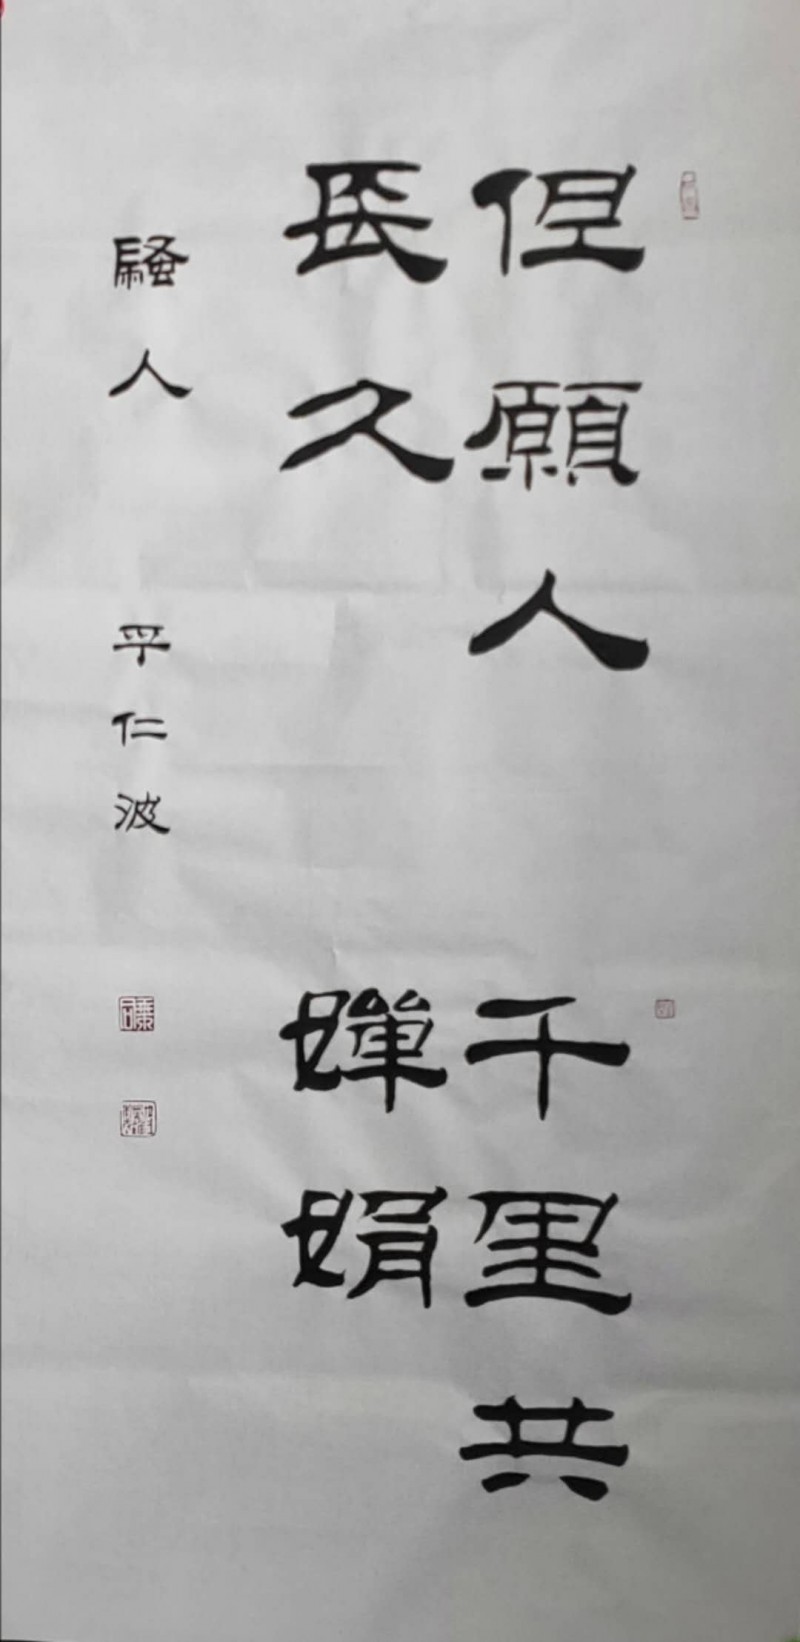 但願人
長久
千里共
嬋娟
騷人 平仁波